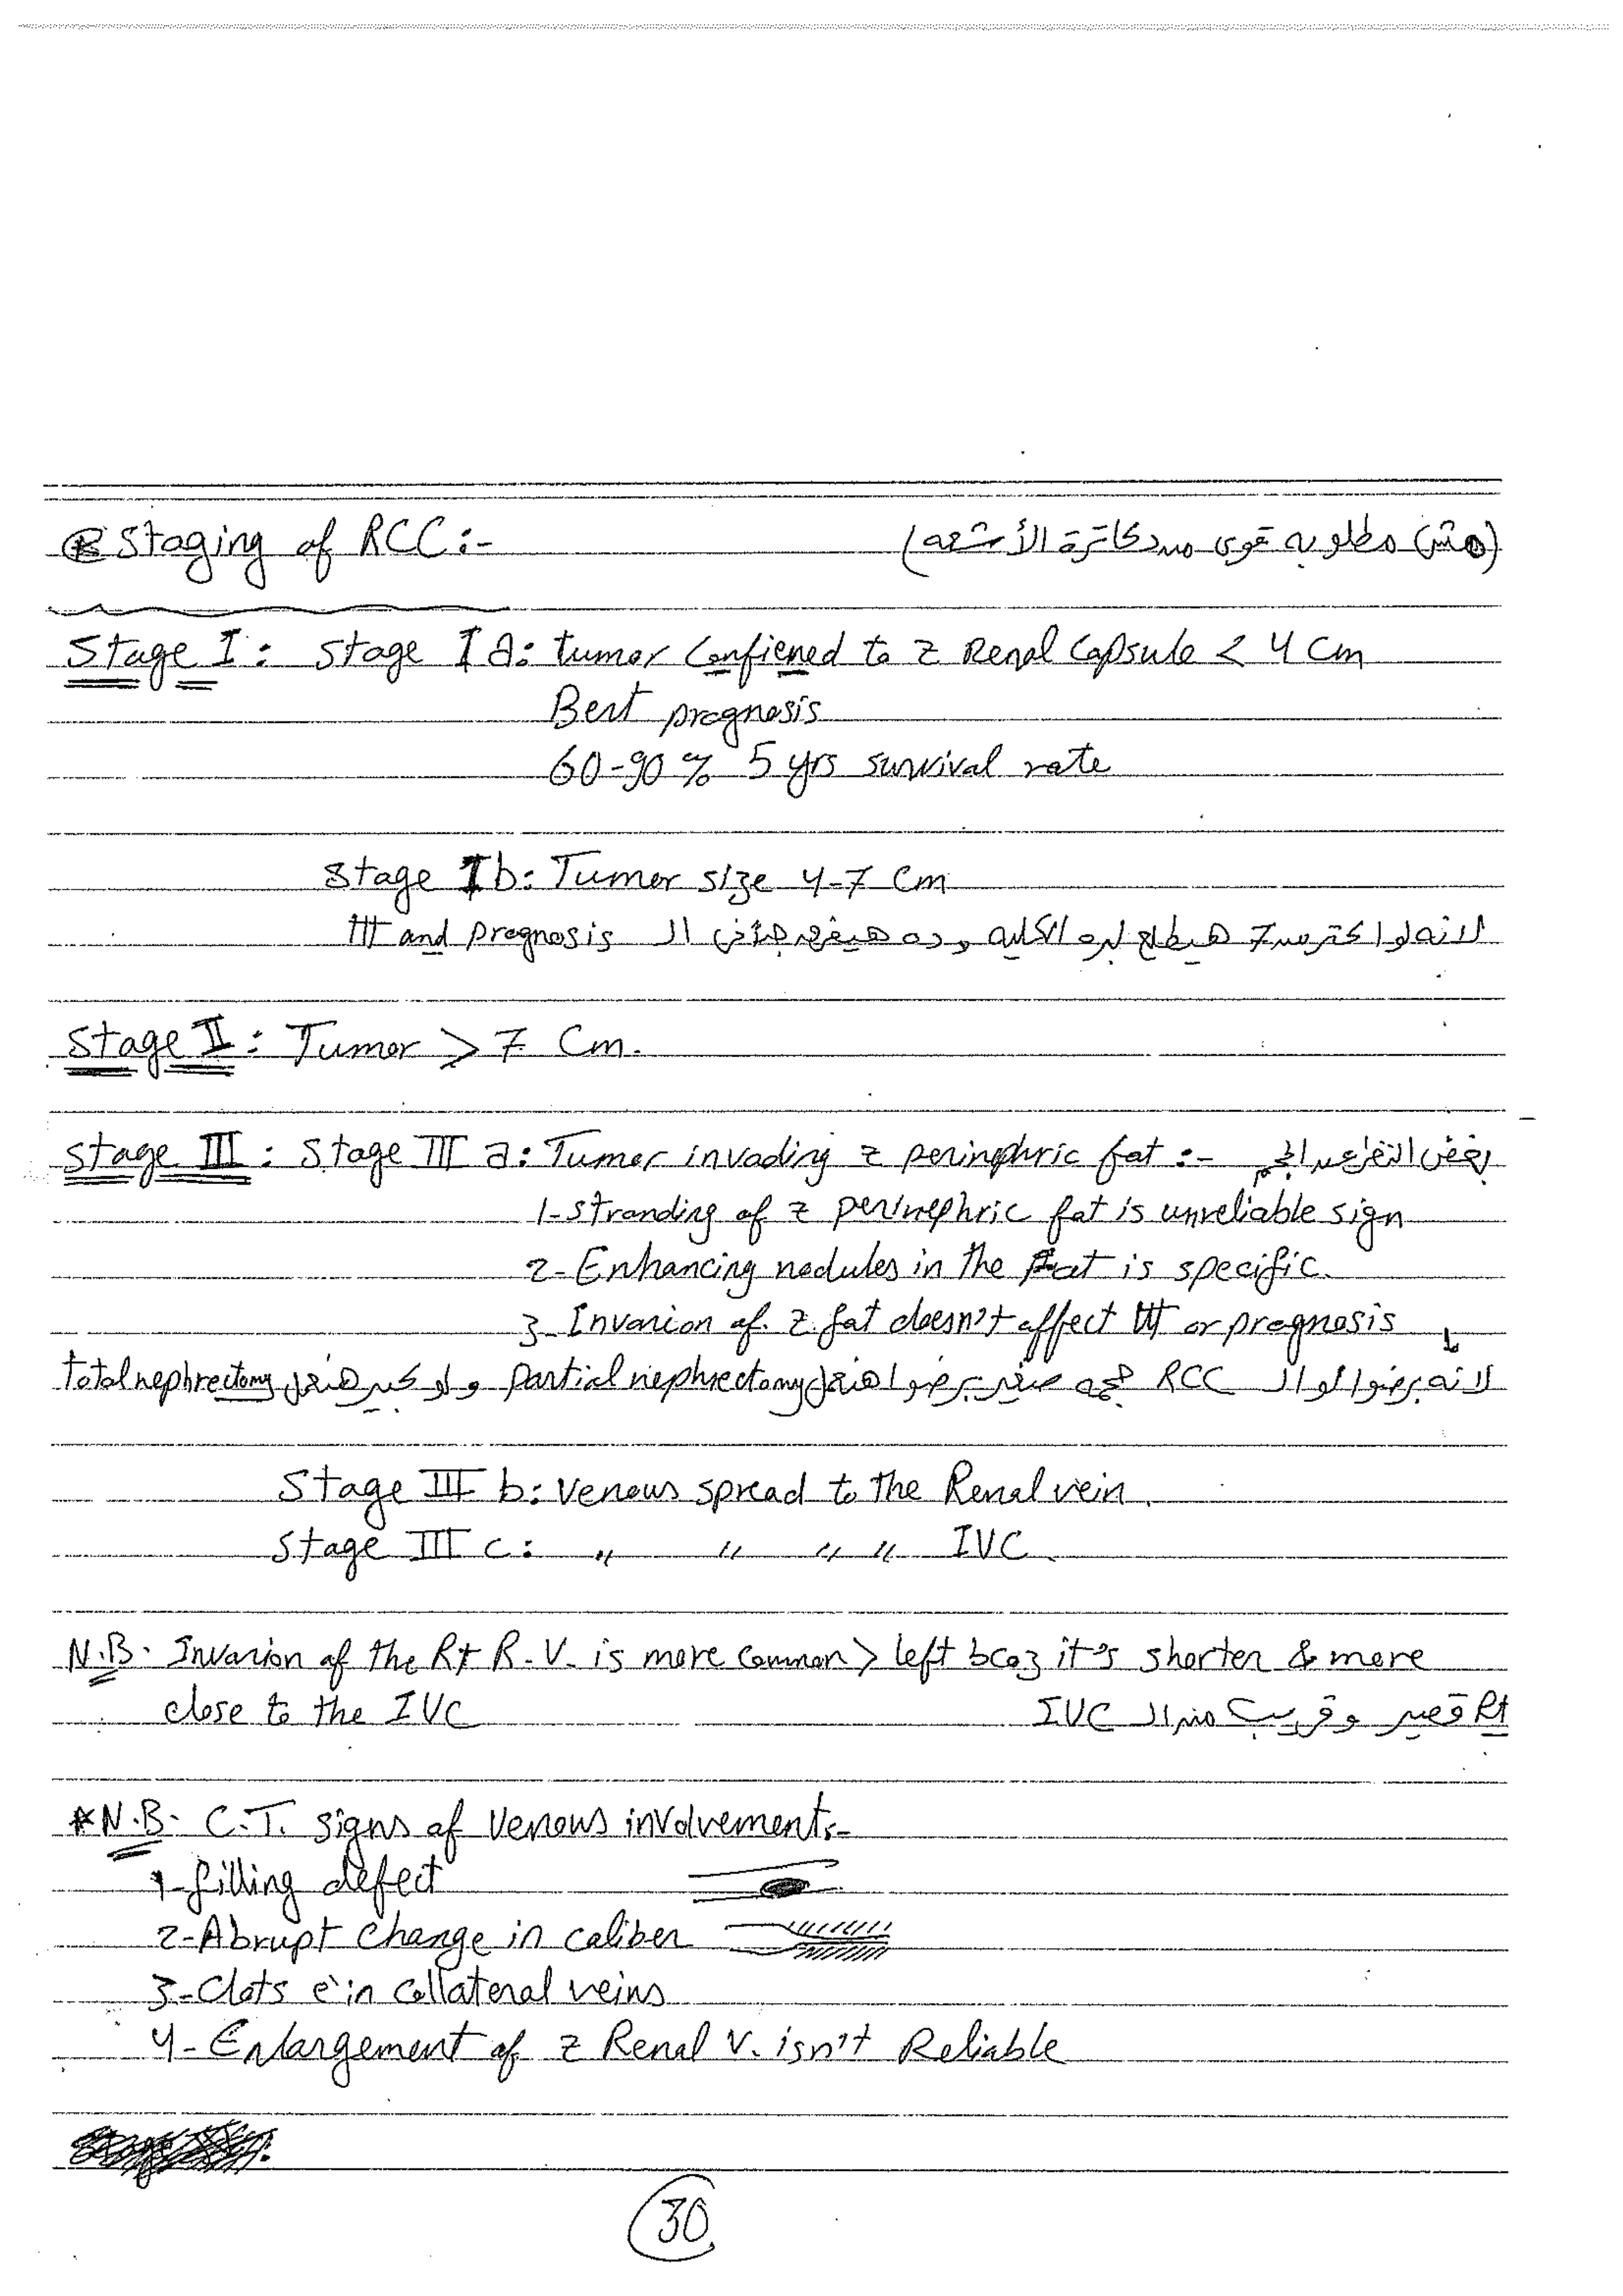 ⊛ Staging of RCC:- (مش مطلوبه قوى من دكاترة الأشعه)
Stage I: Stage I a: tumor Confiened to z Renal Capsule < 4 Cm
Best prognosis
60-90% 5 yrs survival rate
Stage I b: Tumor size 4-7 Cm
لانه لو اكتر من 7 هيطلع بره الكليه وده هيفرق جدا فى الـ ttt and prognosis
Stage II: Tumor > 7 Cm.
Stage III: Stage III a: Tumor invading z perinephric fat :- بغض النظر عن الحجم
1- stranding of z perinephric fat is unreliable sign
2- Enhancing nodules in the Fat is specific.
3- Invasion of z fat doesn't affect ttt or prognosis
لانه برضوا لو الـ RCC حجمه صغير برضوا هنعمل partial nephrectomy ولو كبير هنعمل total nephrectomy
Stage III b: Venous spread to the Renal vein.
Stage III c: " " " " IVC
N.B. Invasion of the Rt R.V. is more Common > left bcoz it's shorter & more
close to the IVC Rt قصير وقريب من الـ IVC
*N.B. C.T. signs of Venous involvement:-
1- filling defect
2- Abrupt change in caliber
3- Clots è in Collateral veins
4- Enlargement of z Renal V. isn't Reliable
30